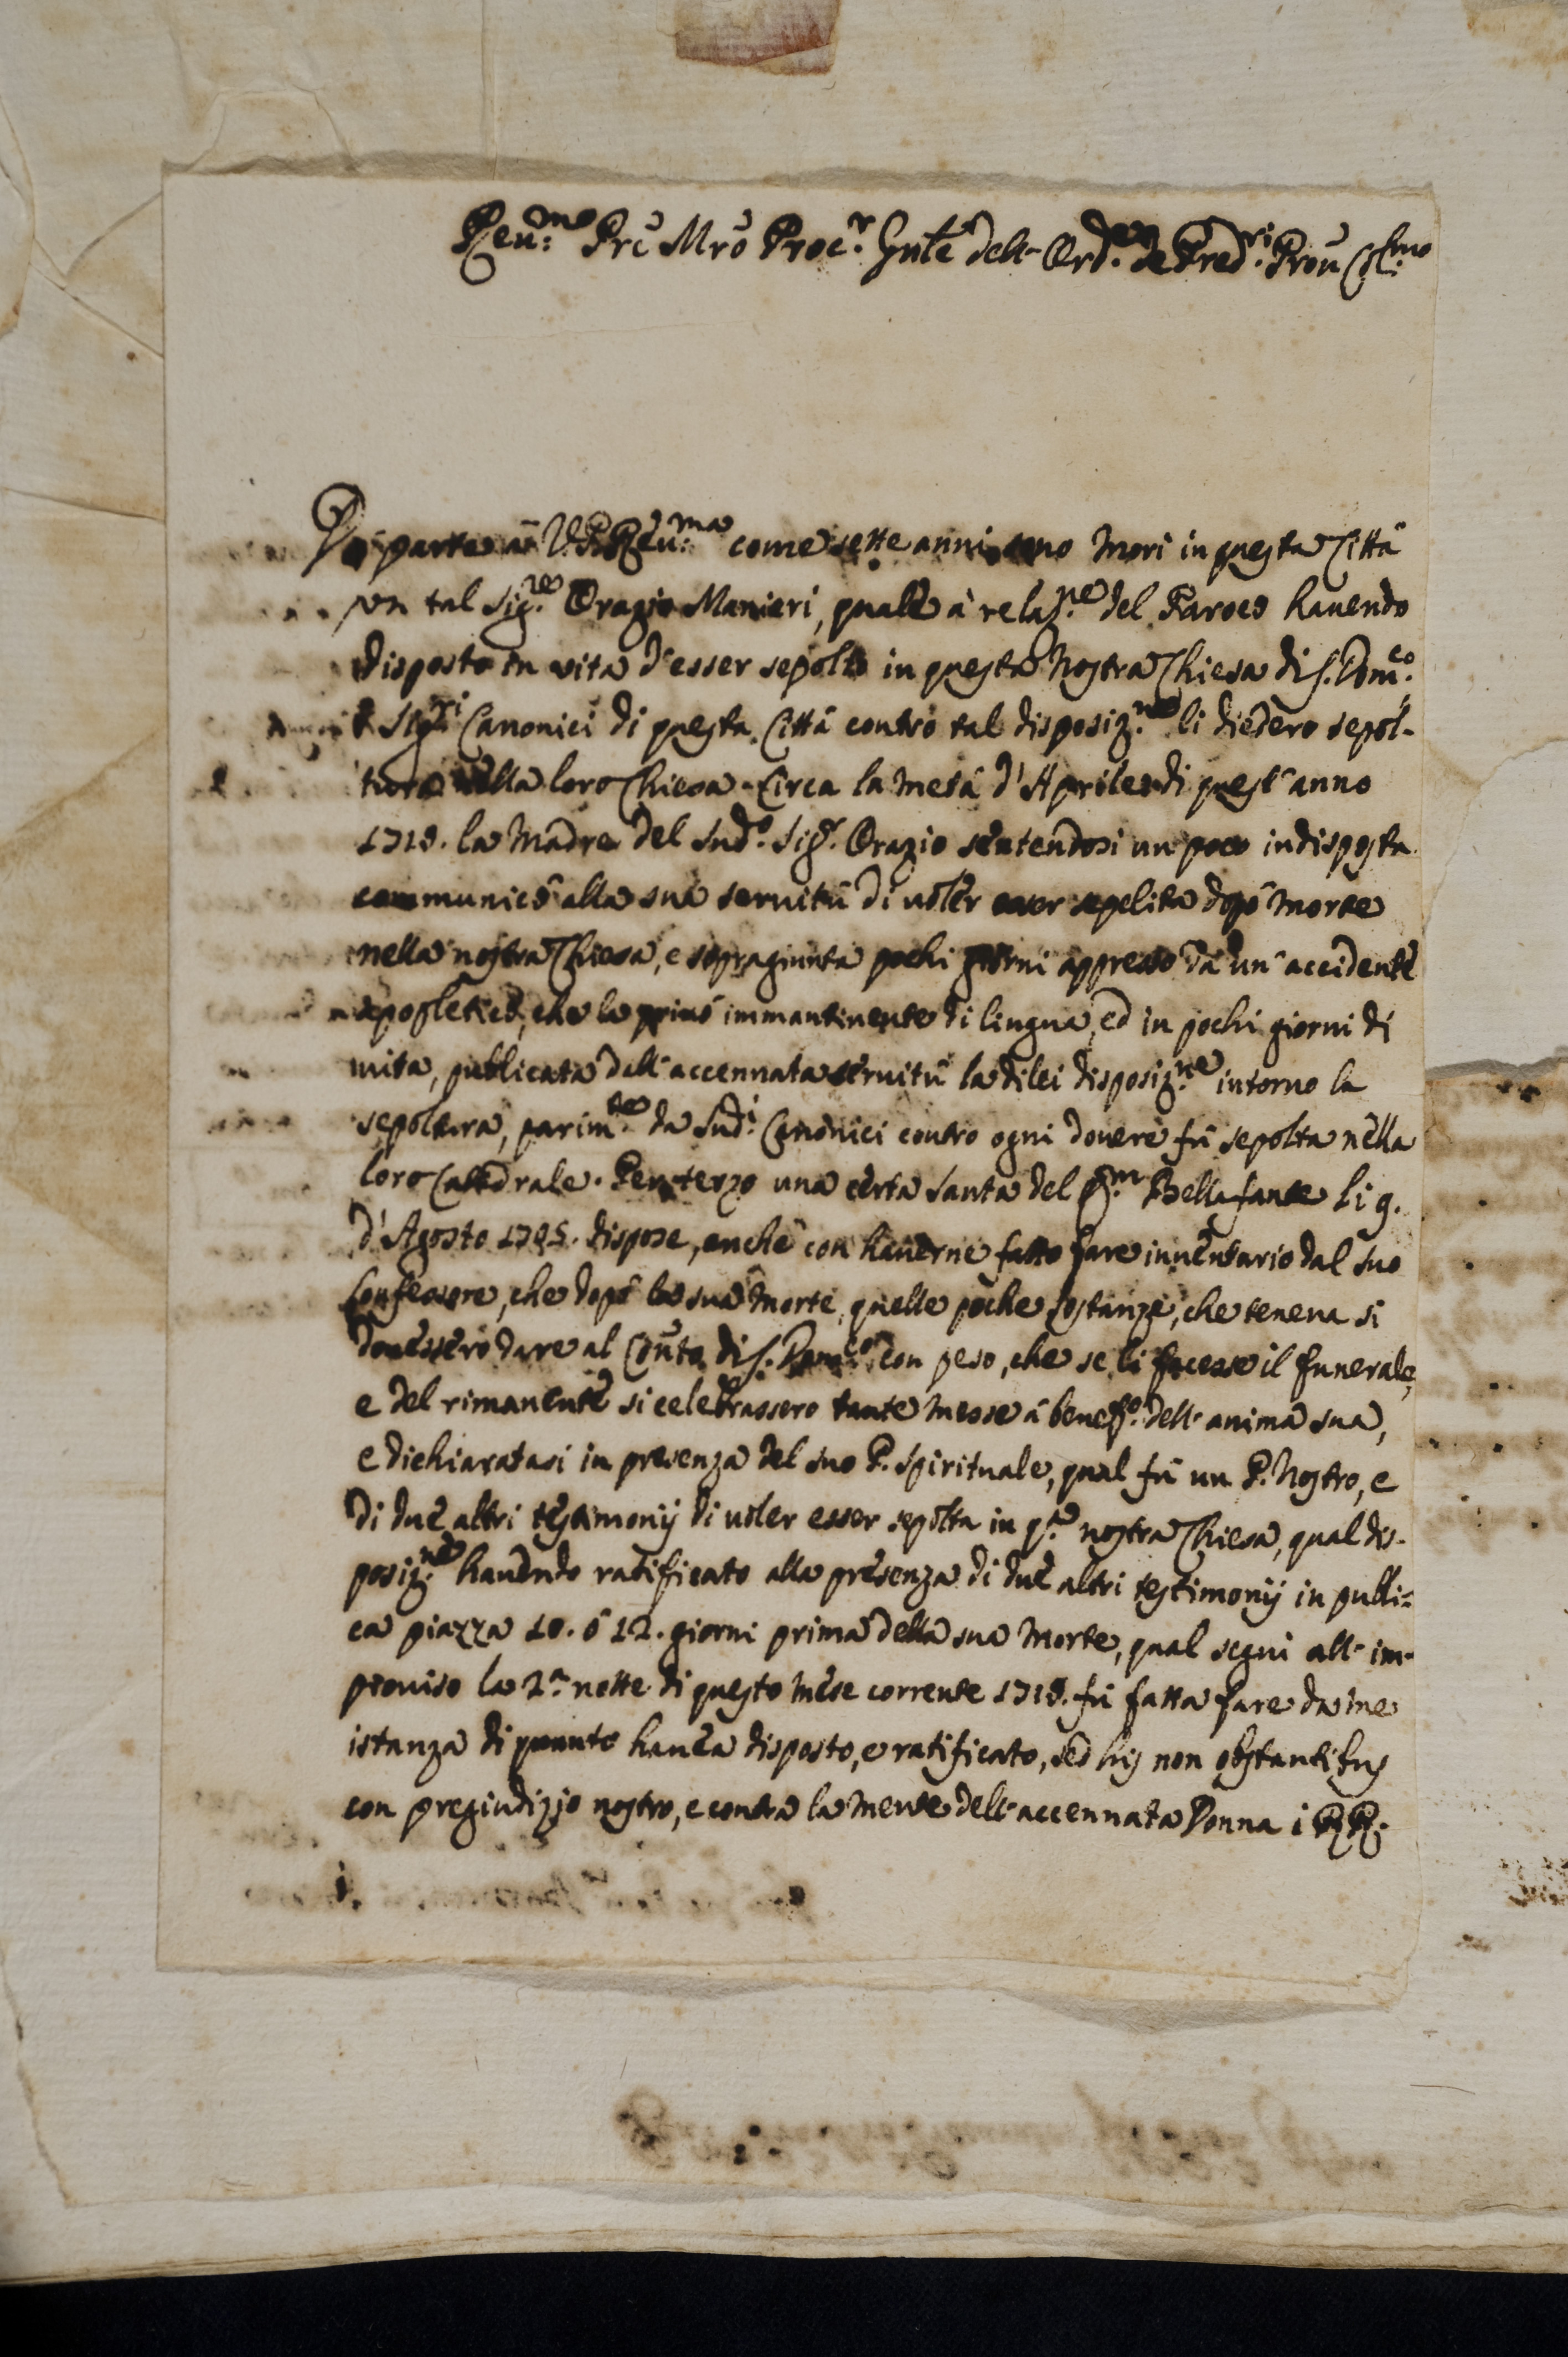 Reu:mo Prē Mrō Proc.r Gnlē dell' Ord.e de Pred.ri Prōn Col.mo
Do parte a V. P. Reu:ma come sette anni sono morì in questa Città
un tal Sig.re Orazio Manieri, quale à relaz.ne del Paroco hauendo
disposto in vita d'esser sepolto in questa nostra Chiesa di S. Dom.co
Sig.ri Canonici di questa Città contro tal disposiz.ne li diedero sepol-
tura nella loro Chiesa. Circa la metà d'Aprile di quest'anno
1718. la Madre del Sud.o Sig.r Orazio sentendosi un poco indisposta
communicò alla sua seruitù di uoler esser sepelita dopò morte
nella nostra Chiesa, e sopragiunta pochi giorni appresso da un' accidente
apopletico, che la priuò immantinente di lingua, ed in pochi giorni di
uita, publicata dall' accennata seruitù la di lei disposiz.ne intorno la
sepoltura, parim.te da Sud.i Canonici contro ogni douere fù sepolta nella
loro Cattedrale. Per terzo una certa Santa del Bellafante li 9.
d'Agosto dispose, anche con hauerne fatto fare inuentario dal suo
Confessore, che dopò la sua morte, quelle poche sostanze, che teneua si
douessero dare al Conuto di S. Dom.co con peso, che se li facesse il funerale,
e del rimanente si celebrassero tante messe à benef.o dell' anima sua,
e dichiaratasi in presenza del suo P. Spirituale, qual fù un P. Nostro, e
di due altri testimonij di uoler esser sepolta in q.ta nostra Chiesa, qual dis-
posiz.ne hauendo ratificato alla presenza di due altri testimonij in publi-
ca piazza 10. ò 12. giorni prima della sua morte, qual seguì all' im-
prouiso la 2.a notte di questo mese corrente 1718. fù fatta fare da me
istanza di quanto hauea disposto, e ratificato, sed his non obstantibus
con pregiudizio nostro, e contra la mente dell' accennata Donna i RR.